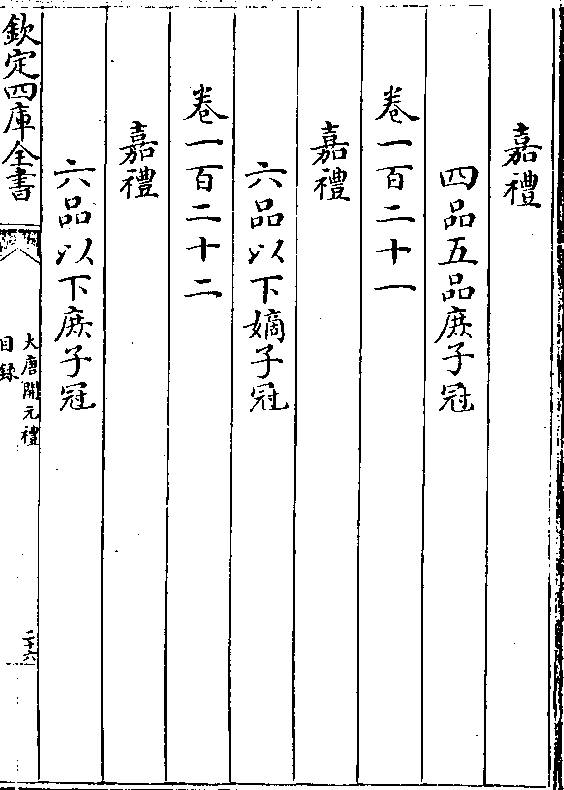 嘉禮
四品五品庶子冠
卷一百二十一
嘉禮
六品以下嫡子冠
卷一百二十二
嘉禮
六品以下庶子冠
欽定四庫全書
大唐開元禮
目録
二十六